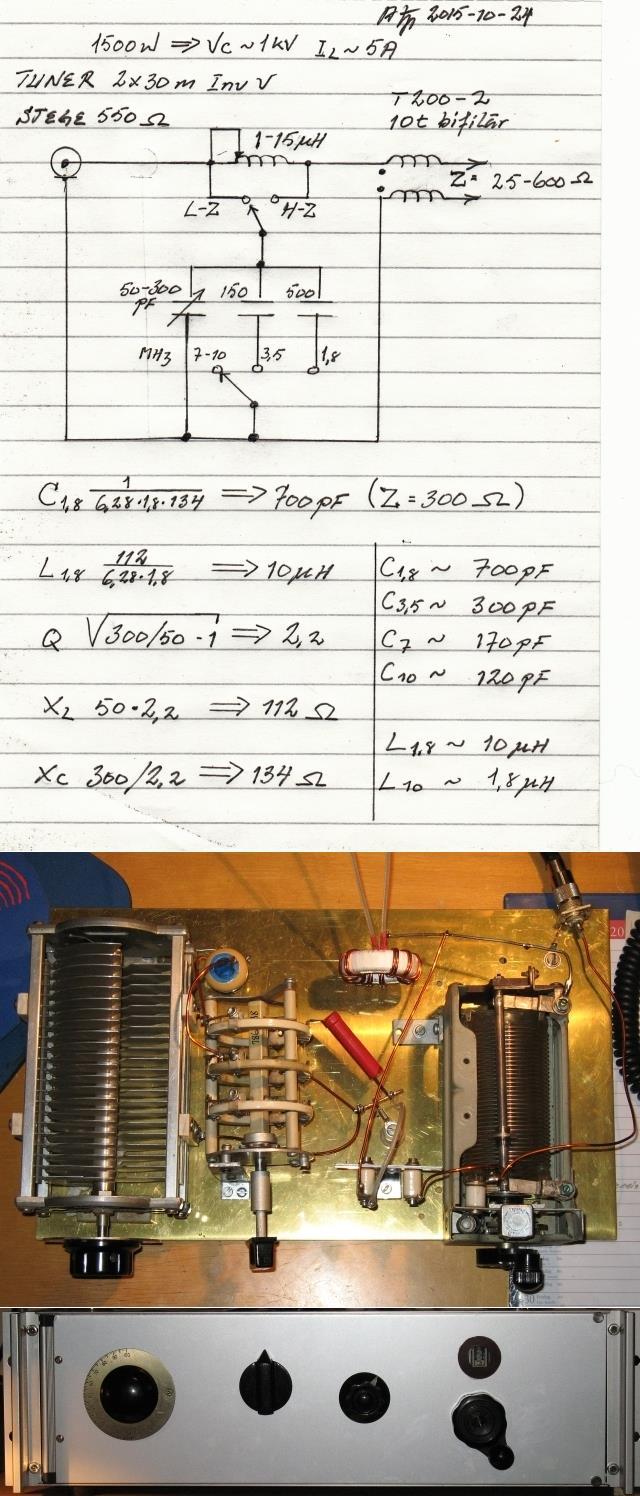 2015-10-24
1500W ⇒ Vc ~ 1kV IL ~ 5A
TUNER 2x30m Inv V
STEGE 550Ω
T200-2
10t bifilär
1-15μH
Z = 25-600Ω
L-Z H-Z
50-300 PF 150 500
MHz 7-10 3,5 1,8
C1,8 1/6,28·1,8·134 ⇒ 700pF (Z=300Ω)
L1,8 112/6,28·1,8 ⇒ 10μH
Q √300/50-1 ⇒ 2,2
XL 50·2,2 ⇒ 112Ω
Xc 300/2,2 ⇒ 134Ω
C1,8 ~ 700pF
C3,5 ~ 300pF
C7 ~ 170pF
C10 ~ 120pF
L1,8 ~ 10μH
L10 ~ 1,8μH
20
30